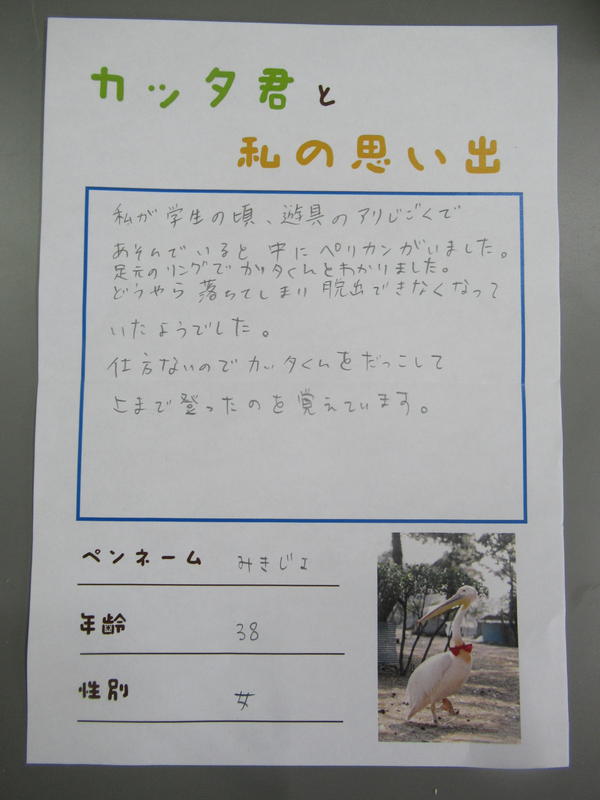 カッタ君と
私の思い出
私が学生の頃、遊具のアリじごくで
あそんでいると中にペリカンがいました。
足元のリングでカッタくんとわかりました。
どうやら落ちてしまい脱出できなくなって
いたようでした。
仕方ないのでカッタくんをだっこして
上まで登ったのを覚えています。
ペンネーム みきじェ
年齢 38
性別 女